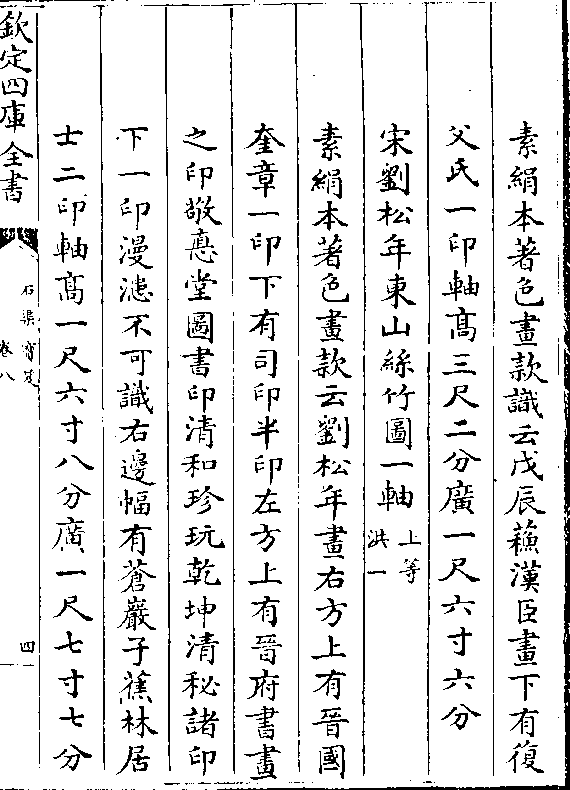 素絹本著色畫款識云戊辰蘓漢臣畫下有復
父氏一印軸髙三尺二分廣一尺六寸六分
宋劉松年東山絲竹圖一軸 上等 洪一
素絹本著色畫款云劉松年畫右方上有晉國
奎章一印下有司印半印左方上有晉府書畫
之印敬悳堂圖書印清和珍玩乾坤清秘諸印
下一印漫漶不可識右邊幅有蒼巖子蕉林居
士二印軸髙一尺六寸八分廣一尺七寸七分
欽定四庫全書
石渠寶笈
卷八
四